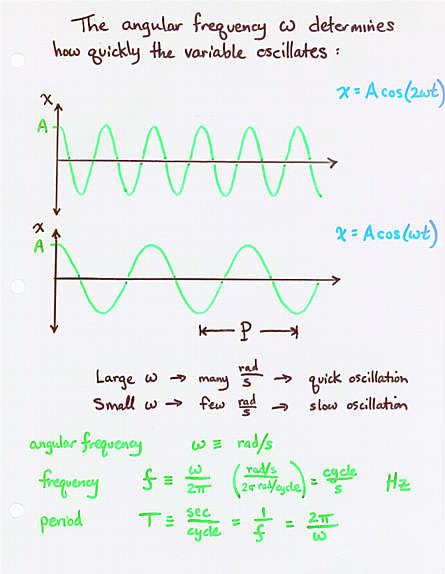 The angular frequency ω determines
how quickly the variable oscillates :
x = A cos(2ωt)
x
A
x = A cos(ωt)
x
A
P
Large ω → many rad/s → quick oscillation
Small ω → few rad/s → slow oscillation
angular frequency ω ≡ rad/s
frequency f ≡ ω/2π (rad/s / 2π rad/cycle) = cycle/s Hz
period T ≡ sec/cycle = 1/f = 2π/ω